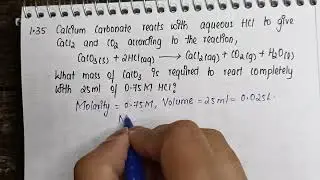 1.35 Calcium carbonate reacts with aqueous HCl to give
CaCl2 and CO2 according to the reaction,
CaCO3(s) + 2HCl(aq) → CaCl2(aq) + CO2(g) + H2O(l)
What mass of CaCO3 is required to react completely
with 25ml of 0.75 M HCl?
Molarity = 0.75M, Volume = 25ml = 0.025L.